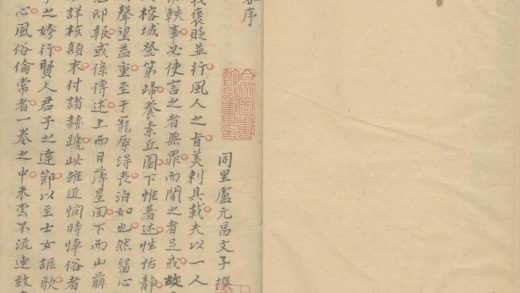 序
同里盧元昌文子撰
褒貶並行風人之旨美刺具載夫以一人
軼事必使言之者無罪而聞之者足戒故
榕城登第歸養素丘園下惟著述性恬静
聲望益重至于寵辱得喪泊如也然留心
邸報或係傳述上而日薄星回下而山崩
詳核顛末付諸赫蹏此雖道憫時悼俗者
之行賢人君子之達節以至士女謳歌
心風俗倫常者一卷之中未嘗不流連致